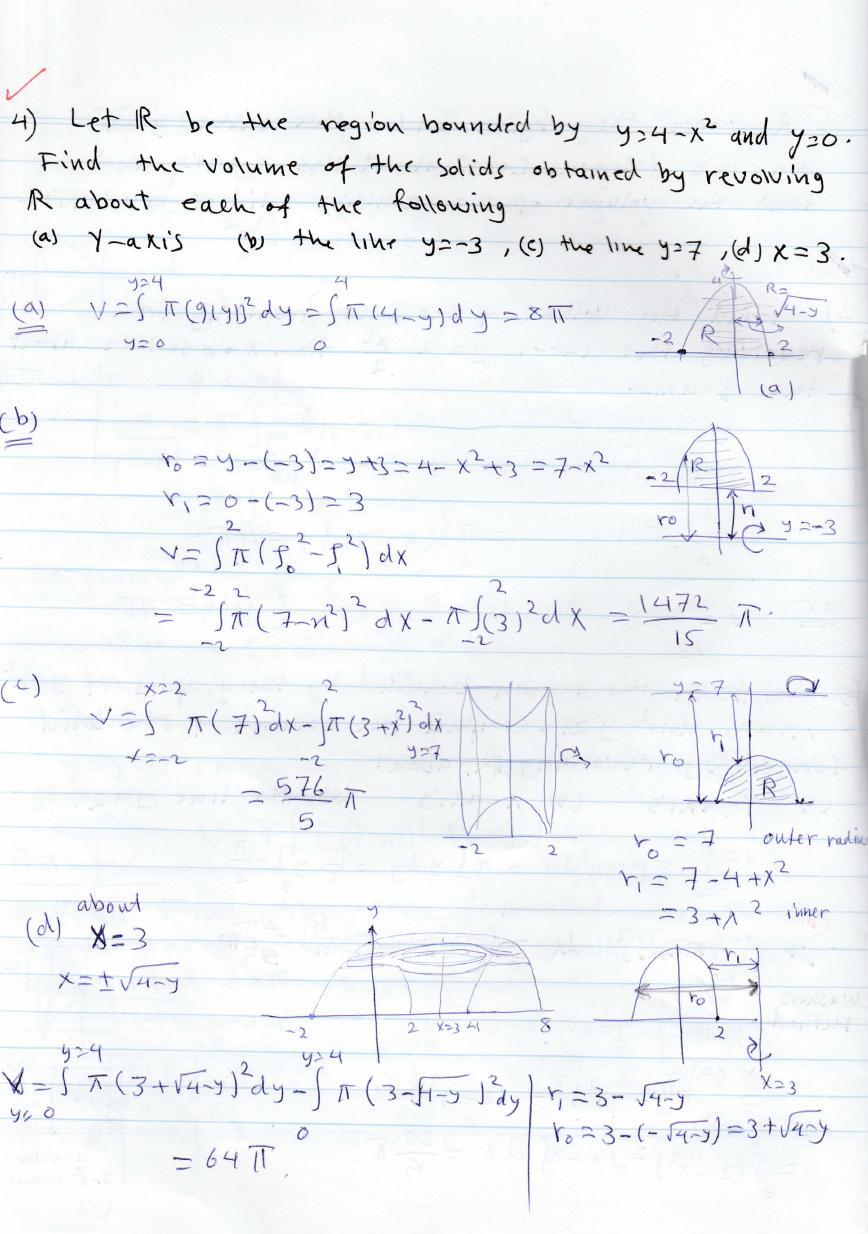 4) Let R be the region bounded by y=4-x² and y=0.
Find the volume of the solids obtained by revolving
R about each of the following
(a) Y-axis (b) the line y=-3, (c) the line y=7, (d) x=3.
(a) V = ∫_{y=0}^{y=4} π(g(y))² dy = ∫_0^4 π(4-y)dy = 8π
4
R=
√4-y
-2 R 2
(a)
(b)
r₀ = y-(-3) = y+3 = 4-x²+3 = 7-x²
r₁ = 0-(-3) = 3
V = ∫_{-2}^{2} π(r₀²-r₁²) dx
= ∫_{-2}^{2} π(7-x²)² dx - π∫_{-2}^{2}(3)² dx = 1472/15 π.
-2 R 2
r₀ r₁ y=-3
(c) V = ∫_{x=-2}^{x=2} π(7)² dx - ∫_{-2}^{2} π(3+x²)² dx
= 576/5 π
y=7
-2 2
y=7
r₀ r₁
R
r₀ = 7 outer radiu
r₁ = 7-4+x²
= 3+x² inner
(d) about
x=3
x=±√4-y
y
-2 2 x=3 4 8
r₁
r₀
2
x=3
V = ∫_{y=0}^{y=4} π(3+√4-y)² dy - ∫_0^{y=4} π(3-√4-y)² dy
= 64π.
r₁ = 3-√4-y
r₀ = 3-(-√4-y) = 3+√4-y